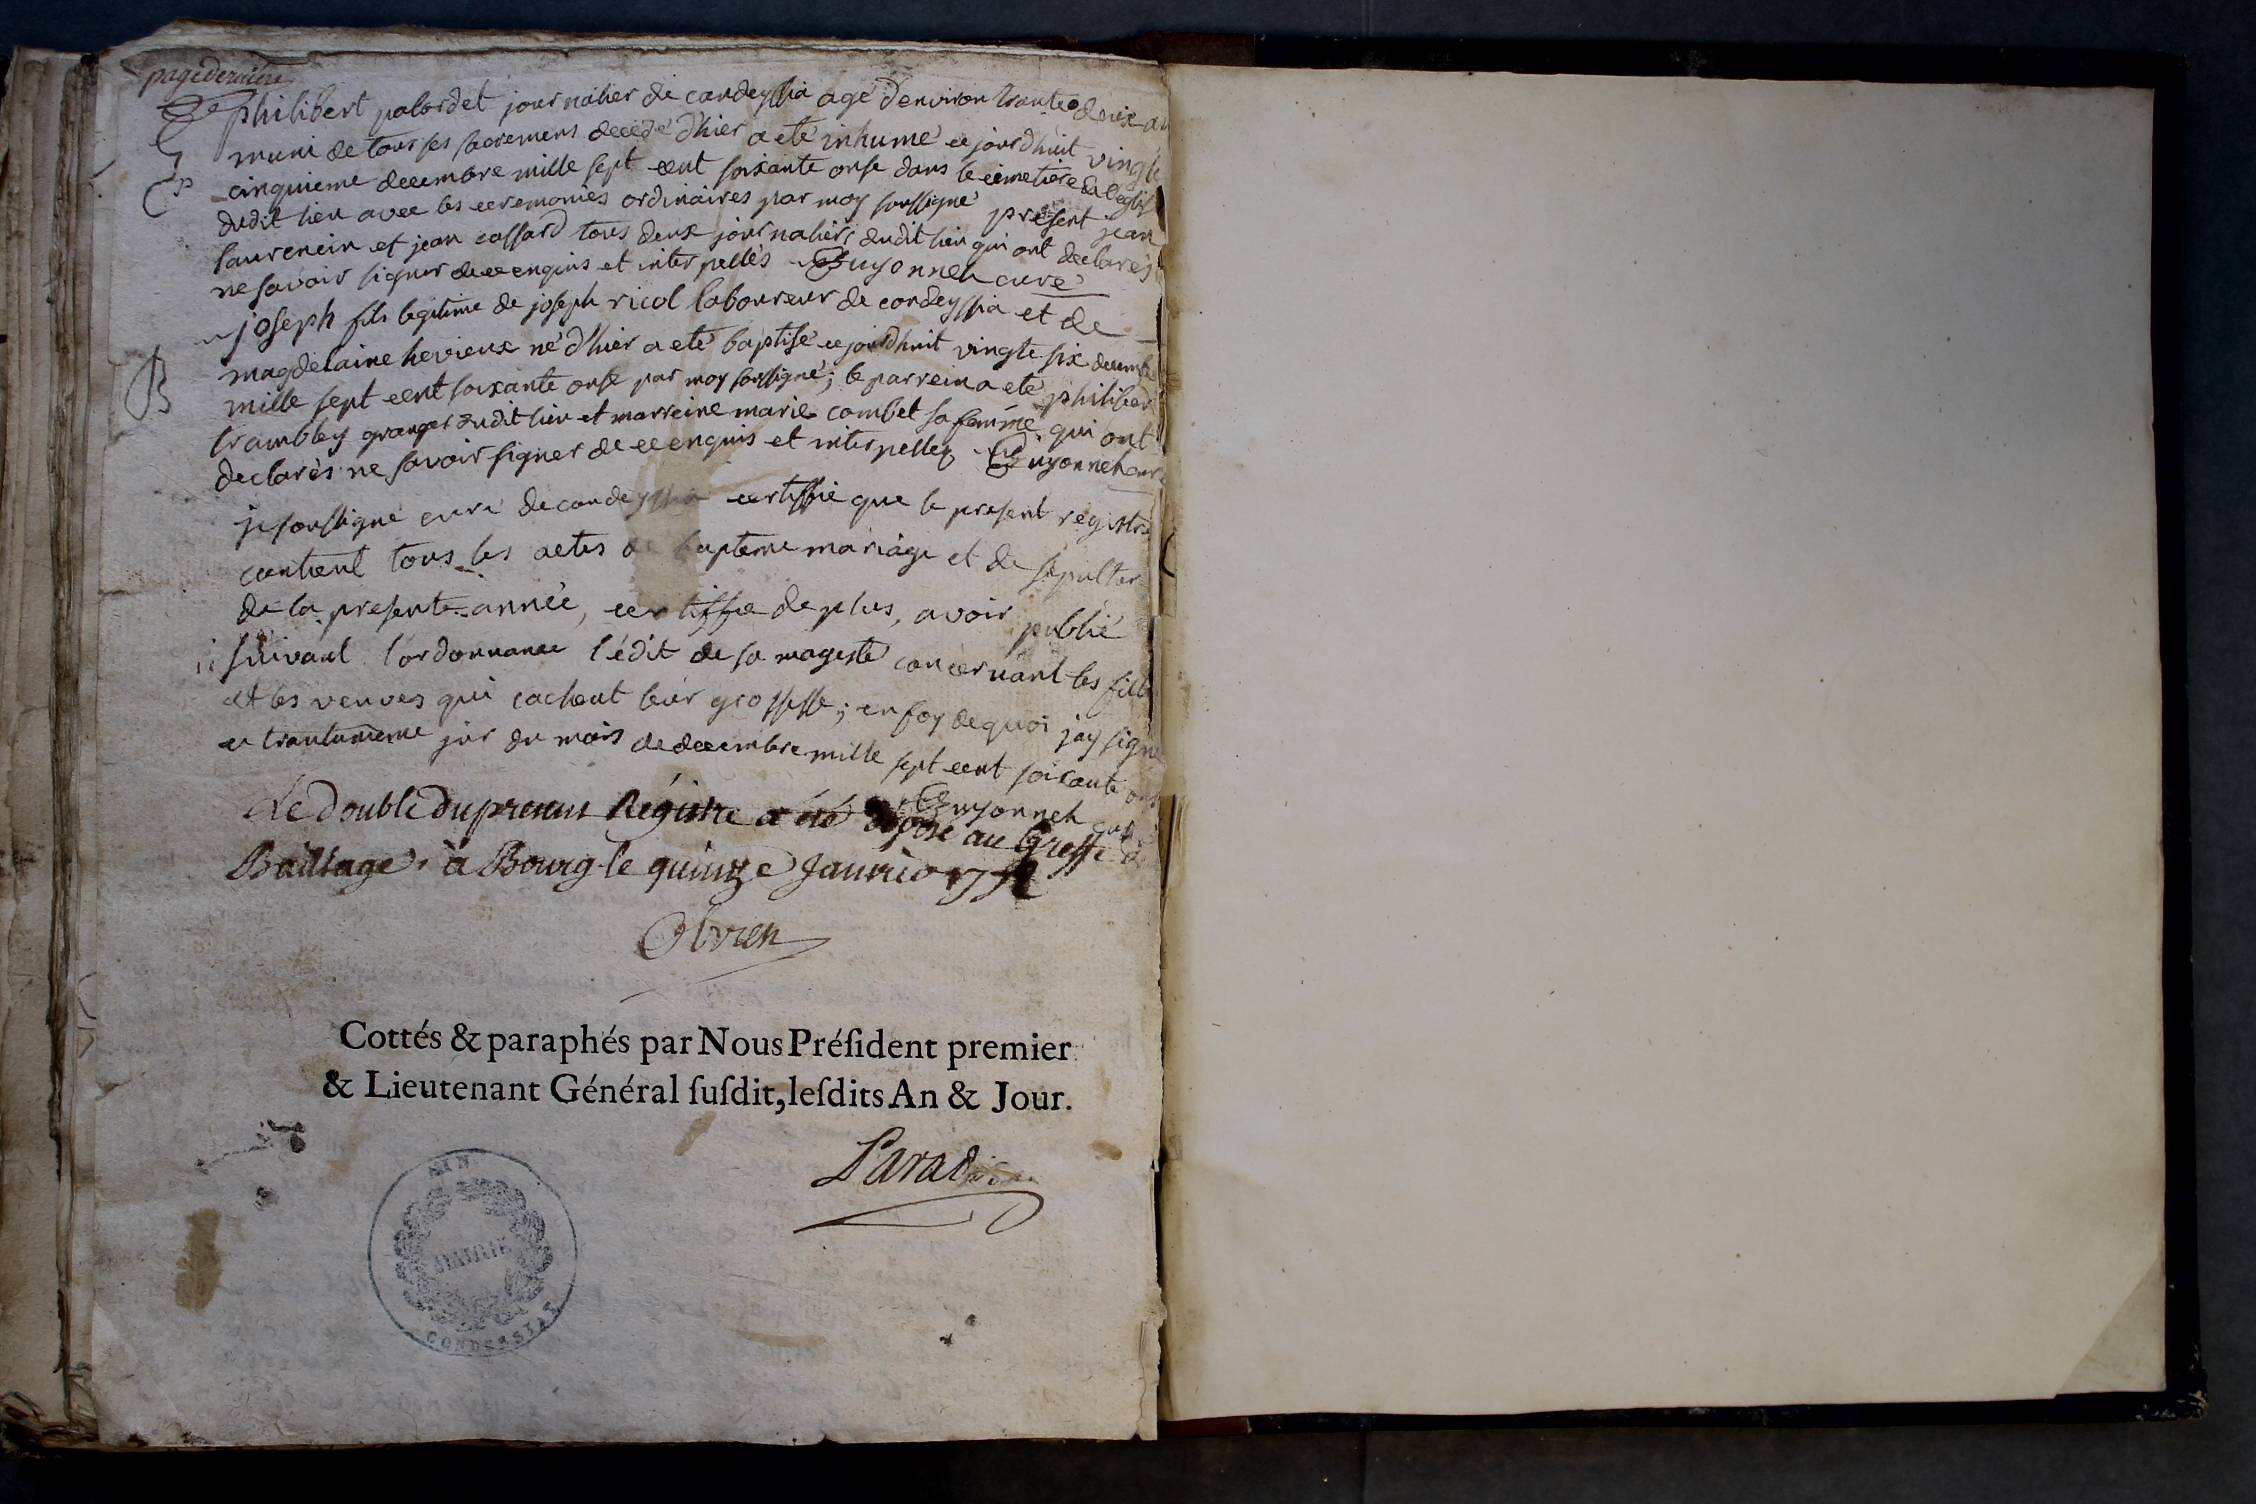 page derniere
philibert palordet journalier de candeyssia agé d'environ trante deux an
muni de tous ses sacremens decedé d'hier a eté inhumé ce jourd'huit vingte
cinquieme decembre mille sept cent soixante onse dans le cimetiere de l'eglis
dudit lieu avec les ceremonies ordinaires par moy soussigné present jean
laurencin et jean cassard tous deux journaliers dudit lieu qui ont declarés
ne savoir signer de ce enquis et interpellés Guyonnet curé
joseph fils legitime de joseph ricol laboureur de condeyssia et de
B magdelaine hevieux né d'hier a eté baptisé ce jourdhuit vingte six decembre
mille sept cent soixante onse par moy soussigné; le parrein a eté philiber
trambley granger dudit lieu et marreine marie combet sa femme qui ont
declarés ne savoir signer de ce enquis et interpellez Guyonnet cur
je soussigné curé de condeyssia certiffie que le present registre
contient tous les actes de bapteme mariage et de sepultur
de la presente année, certiffie de plus, avoir publié
suivant l'ordonnance l'édit de sa magesté concernant les filles
et les veuves qui cachent leur grossesse; en foy de quoi jay signé
ce trantunieme jur du mois de decembre mille sept cent soixante on
Guyonnet curé
Le double du present Régistre a été déposé au Greffe du
Bailliage à Bourg le quinze Janvier 1772
Cottés & paraphés par Nous Préſident premier
& Lieutenant Général ſuſdit, leſdits An & Jour.
Paradis
AIN
MAIRIE
CONDESSIAT